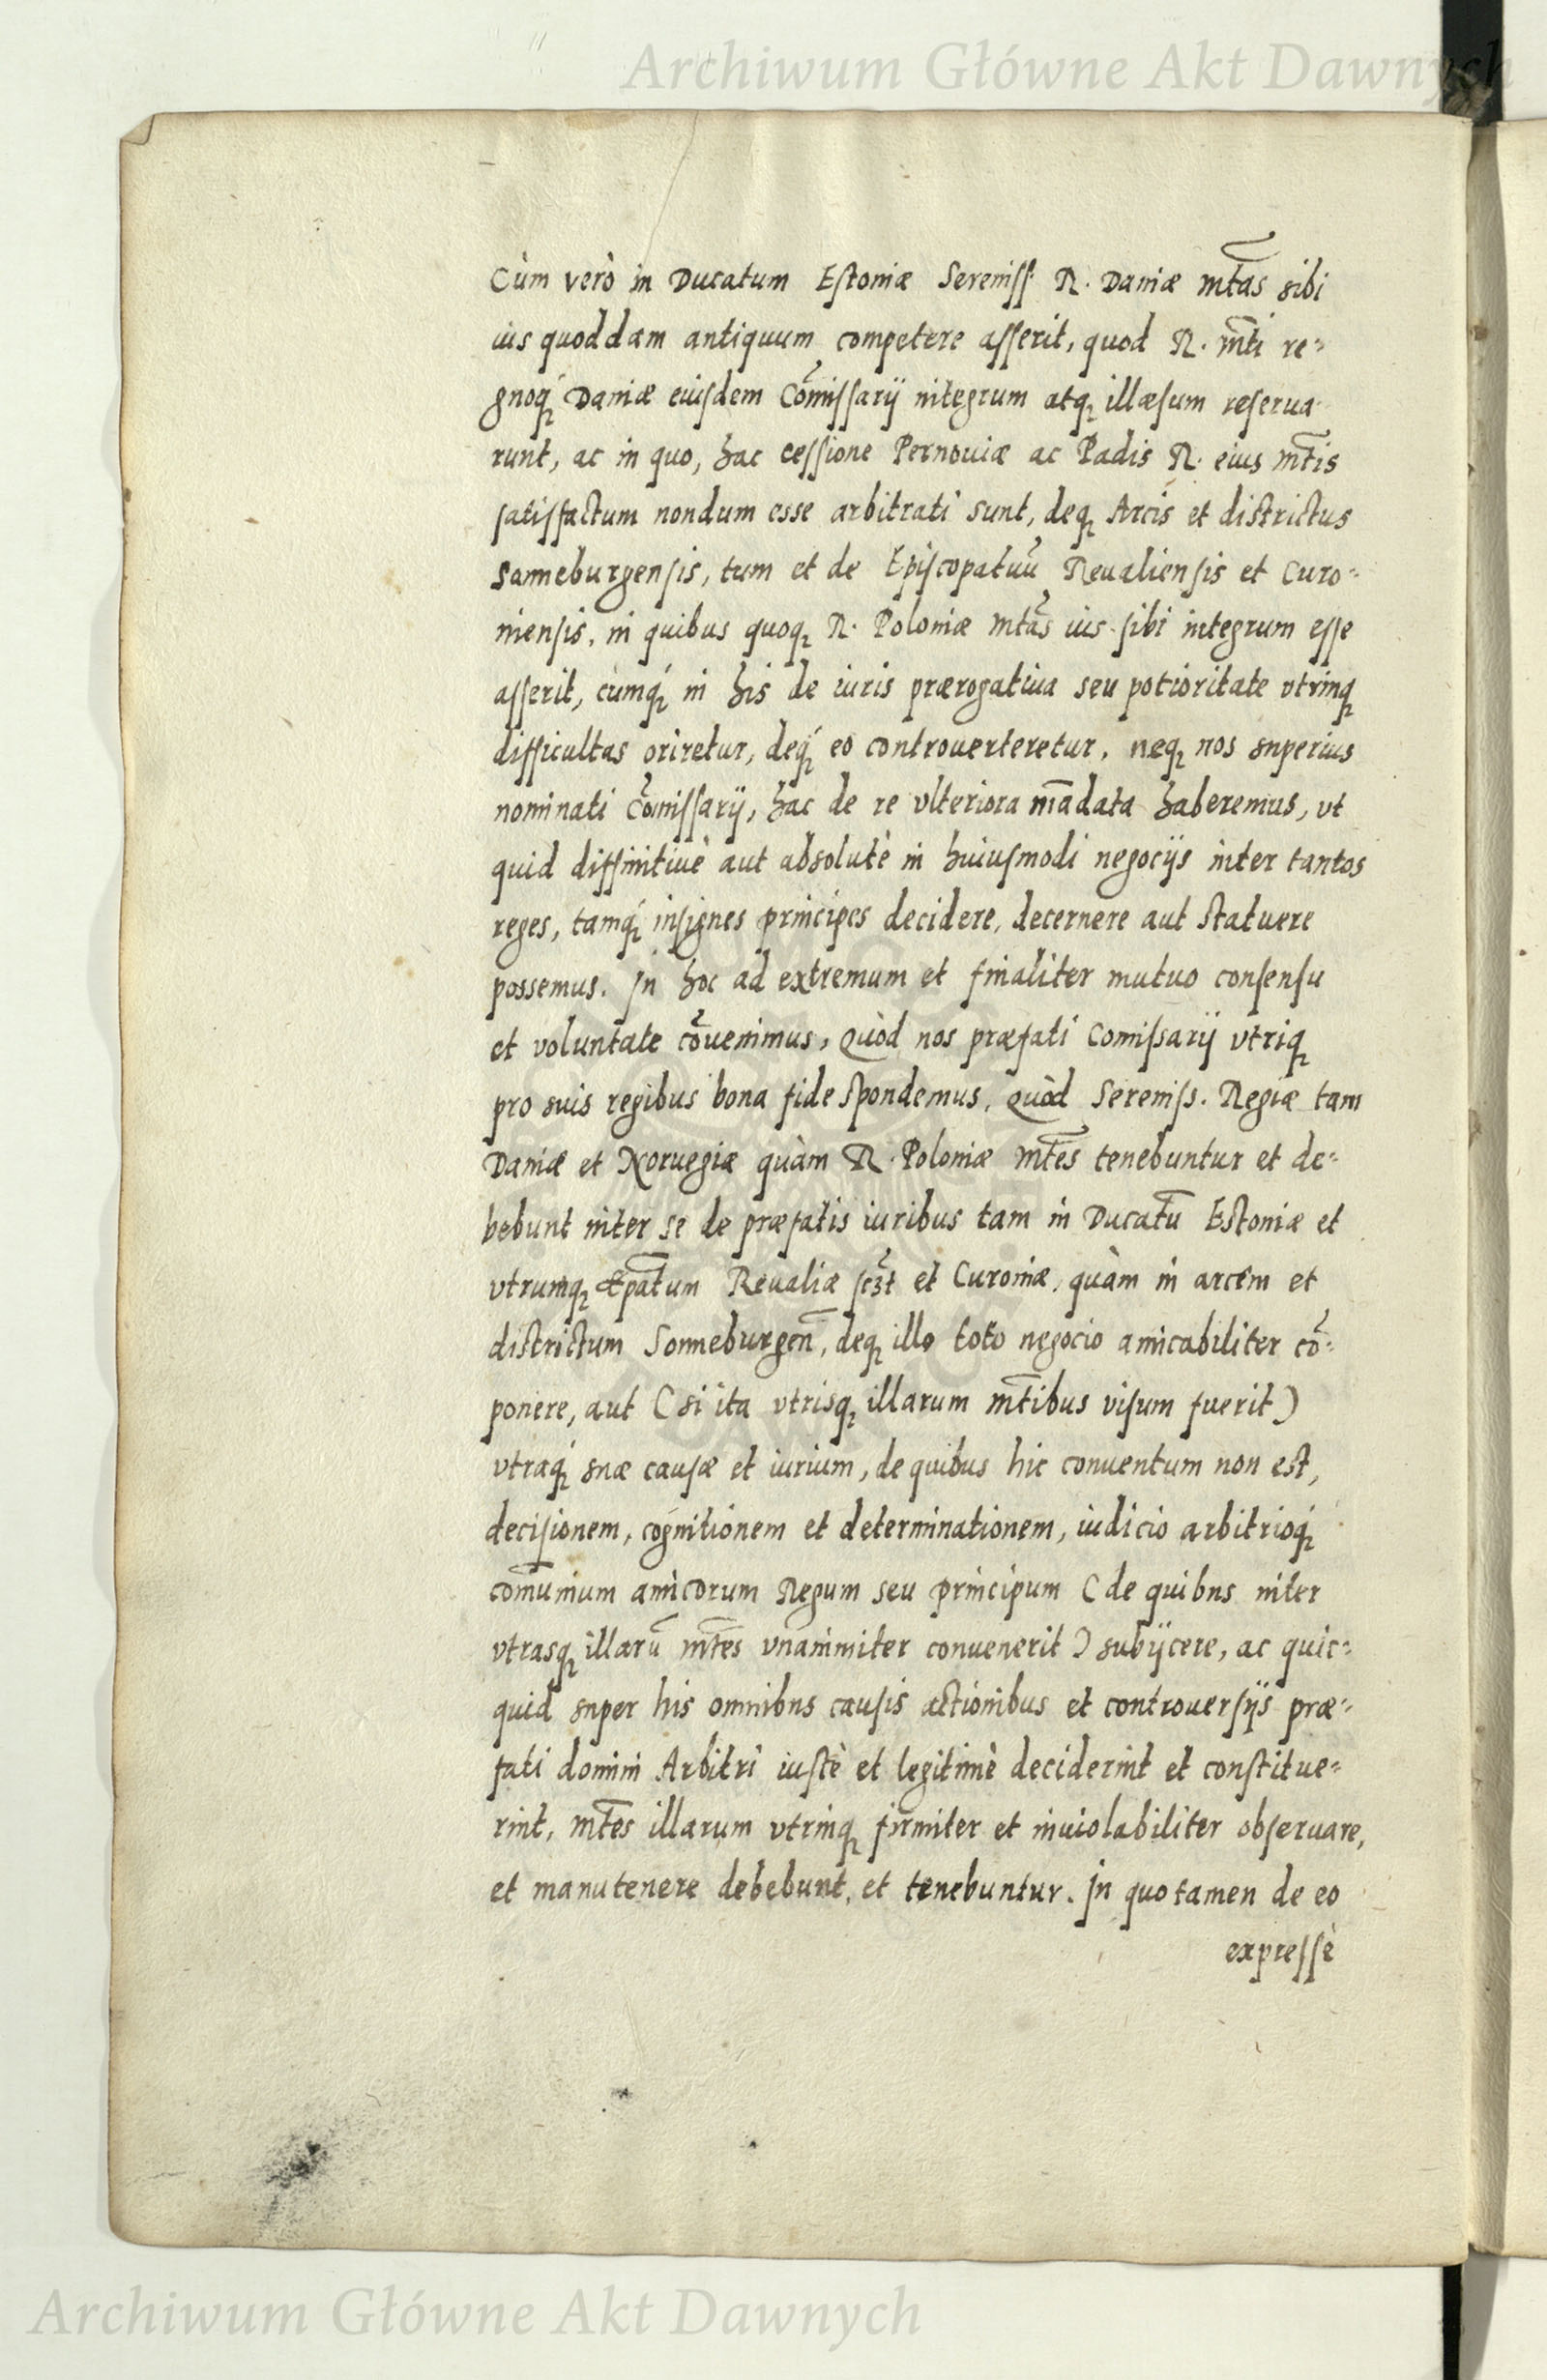 Archiwum Główne Akt Dawnych
Cùm verò in Ducatum Estoniæ Sereniss. R. Daniæ Mtãs sibi
ius quoddam antiquum competere asserit, quod R. Mti re-
gnoq́; Daniæ eiusdem Cõmissarij integrum atq; illæsum reserua-
runt, ac in quo, hac cessione Pernouiæ ac Padis R. eius Mtis
satisfactum nondum esse arbitrati sunt, deq; Arcis et districtus
Sonneburgensis, tum et de Episcopatuũ Reualiensis et Curo-
niensis, in quibus quoq; R. Poloniæ Mtãs ius sibi integrum esse
asserit, cùmq́; in his de iuris prærogatiua seu potioritate vtrinq;
difficultas oriretur, deq́; eo controuerteretur, neq; nos superius
nominati Cõmissarij, hac de re vlteriora mãdata haberemus, vt
quid diffinitiuè aut absolutè in huiusmodi negocijs inter tantos
reges, tamq́; insignes principes decidere, decernere aut statuere
possemus. In hoc ad extremum et finaliter mutuo consensu
et voluntate cõuenimus, Quòd nos præfati Comissarij vtriq;
pro suis regibus bona fide spondemus, Quòd Sereniss. Regiæ tam
Daniæ et Noruegiæ quàm R. Poloniæ Mtẽs tenebuntur et de-
bebunt inter se de præfatis iuribus tam in Ducatũ Estoniæ et
vtrumq; Epatum Reualiæ sczt et Curoniæ, quàm in arcem et
districtum Sonneburgeñ, deq; illo toto negocio amicabiliter cõ-
ponere, aut (si ita vtrisq; illarum Mtibus visum fuerit)
vtraq́; suæ causæ et iurium, de quibus hic conuentum non est,
decisionem, cognitionem et determinationem, iudicio arbitrioq́;
comũnium amicorum Regum seu principum (de quibus inter
vtrasq; illarũ Mtẽs vnanimiter conuenerit) subijcere, ac quic-
quid super his omnibus causis actionibus et controuersijs præ-
fati domini Arbitri iustè et legitimè deciderint et constitue-
rint, Mtẽs illarum vtrinq; firmiter et inuiolabiliter obseruare,
et manutenere debebunt, et tenebuntur. In quo tamen de eo
expressè
Archiwum Główne Akt Dawnych